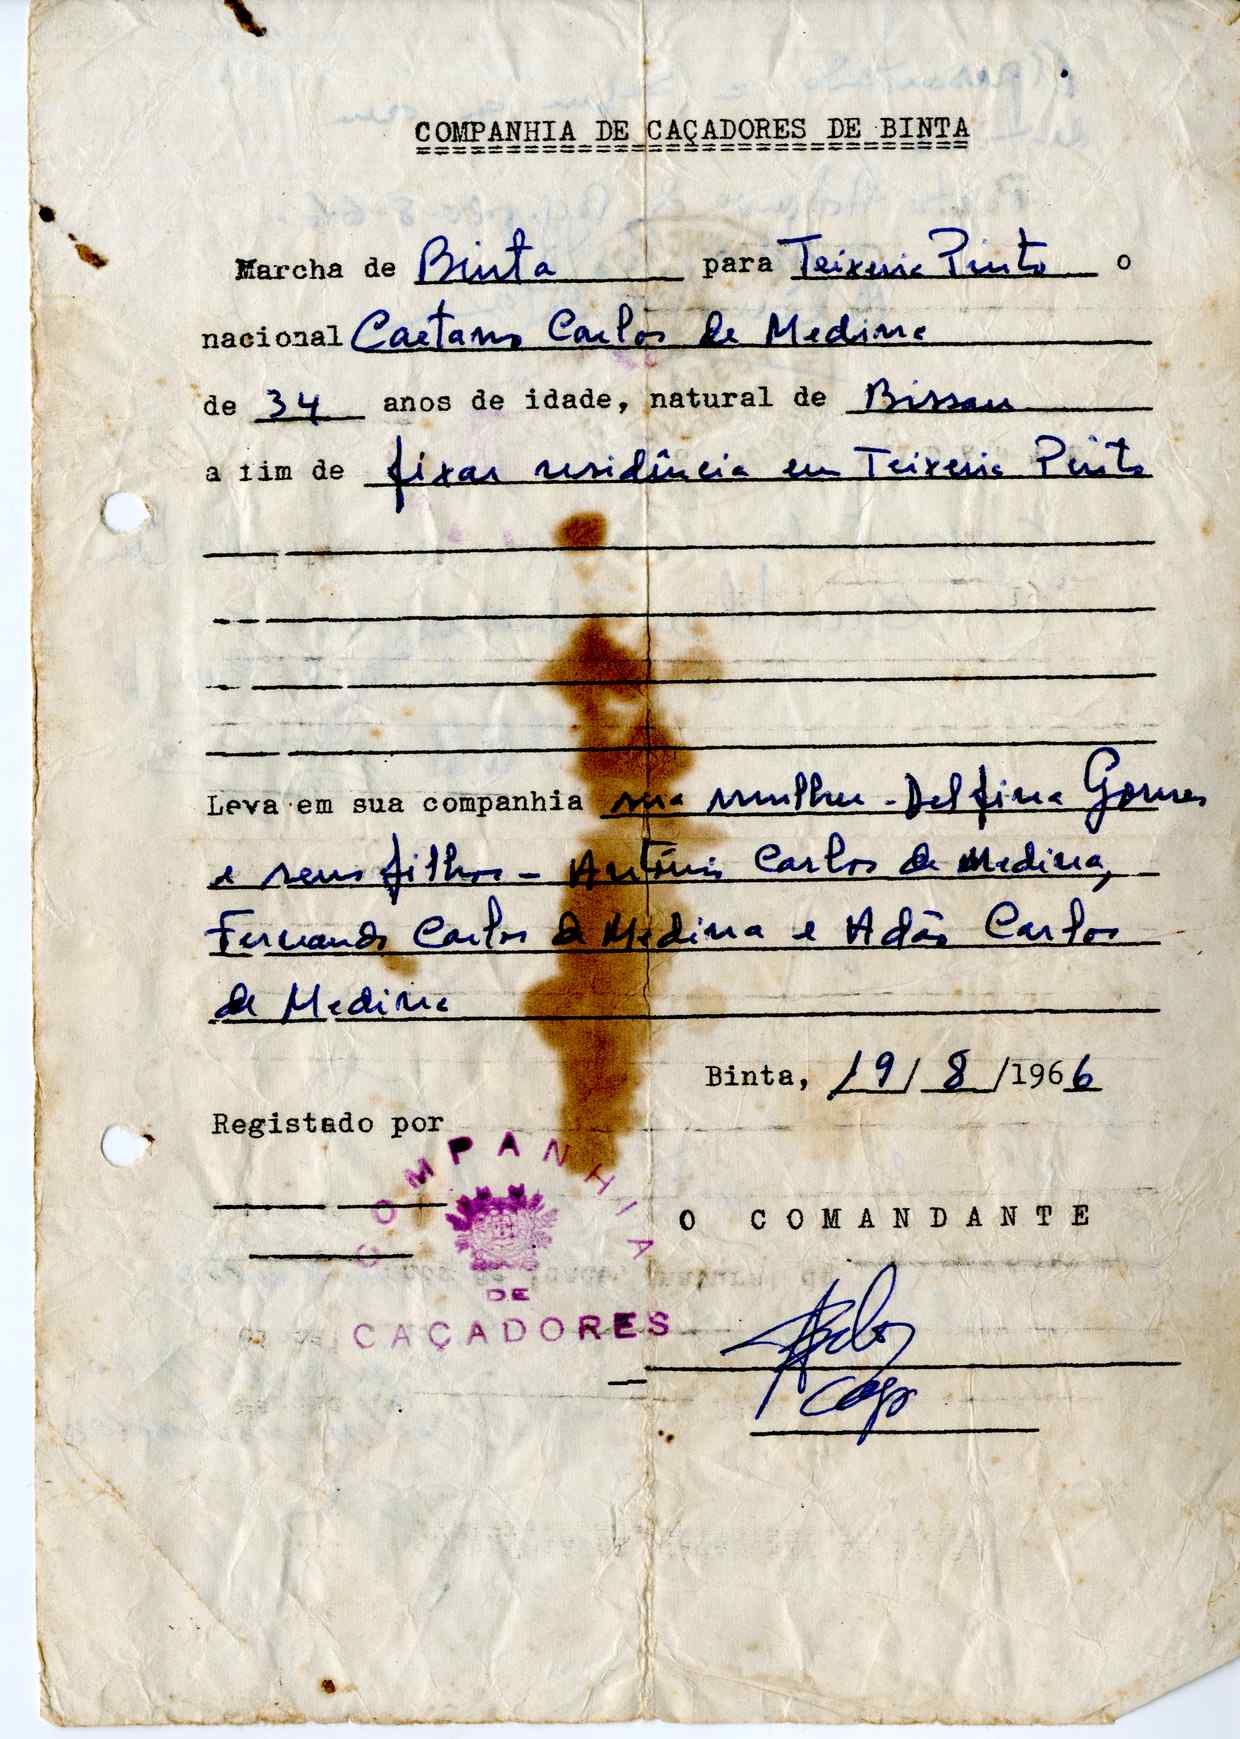 COMPANHIA DE CAÇADORES DE BINTA
Marcha de Binta para Teixeira Pinto o
nacional Caetano Carlos de Medina
de 34 anos de idade, natural de Bissau
a fim de fixar residência em Teixeira Pinto
Leva em sua companhia sua mulher - Delfina Gomes
e seus filhos - António Carlos de Medina,
Fernando Carlos de Medina e Adão Carlos
de Medina
Binta, 19/ 8 /1966
Registado por
COMPANHIA
DE
CAÇADORES
O COMANDANTE